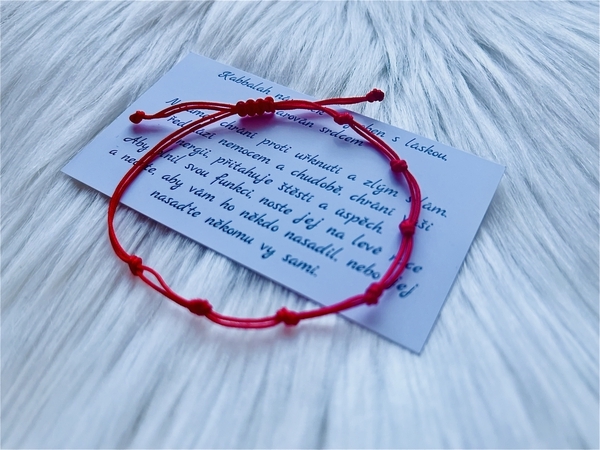 Kabbalah s láskou
srdcem
chrání proti uřknutí a zlým
nemocem a chudobě, chrání
přitahuje štěstí a úspěch.
Aby svou funkci, noste jej na levé
a nechte, aby vám ho někdo nasadil, nebo jej
nasaďte někomu vy sami.